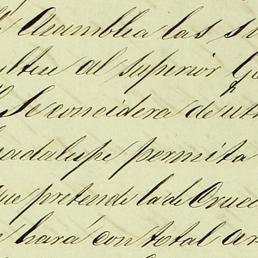 Asamblea las su
al superior G
Se considera de uti
adalupe permita
ue pretende la de Cruc
hará con total ar